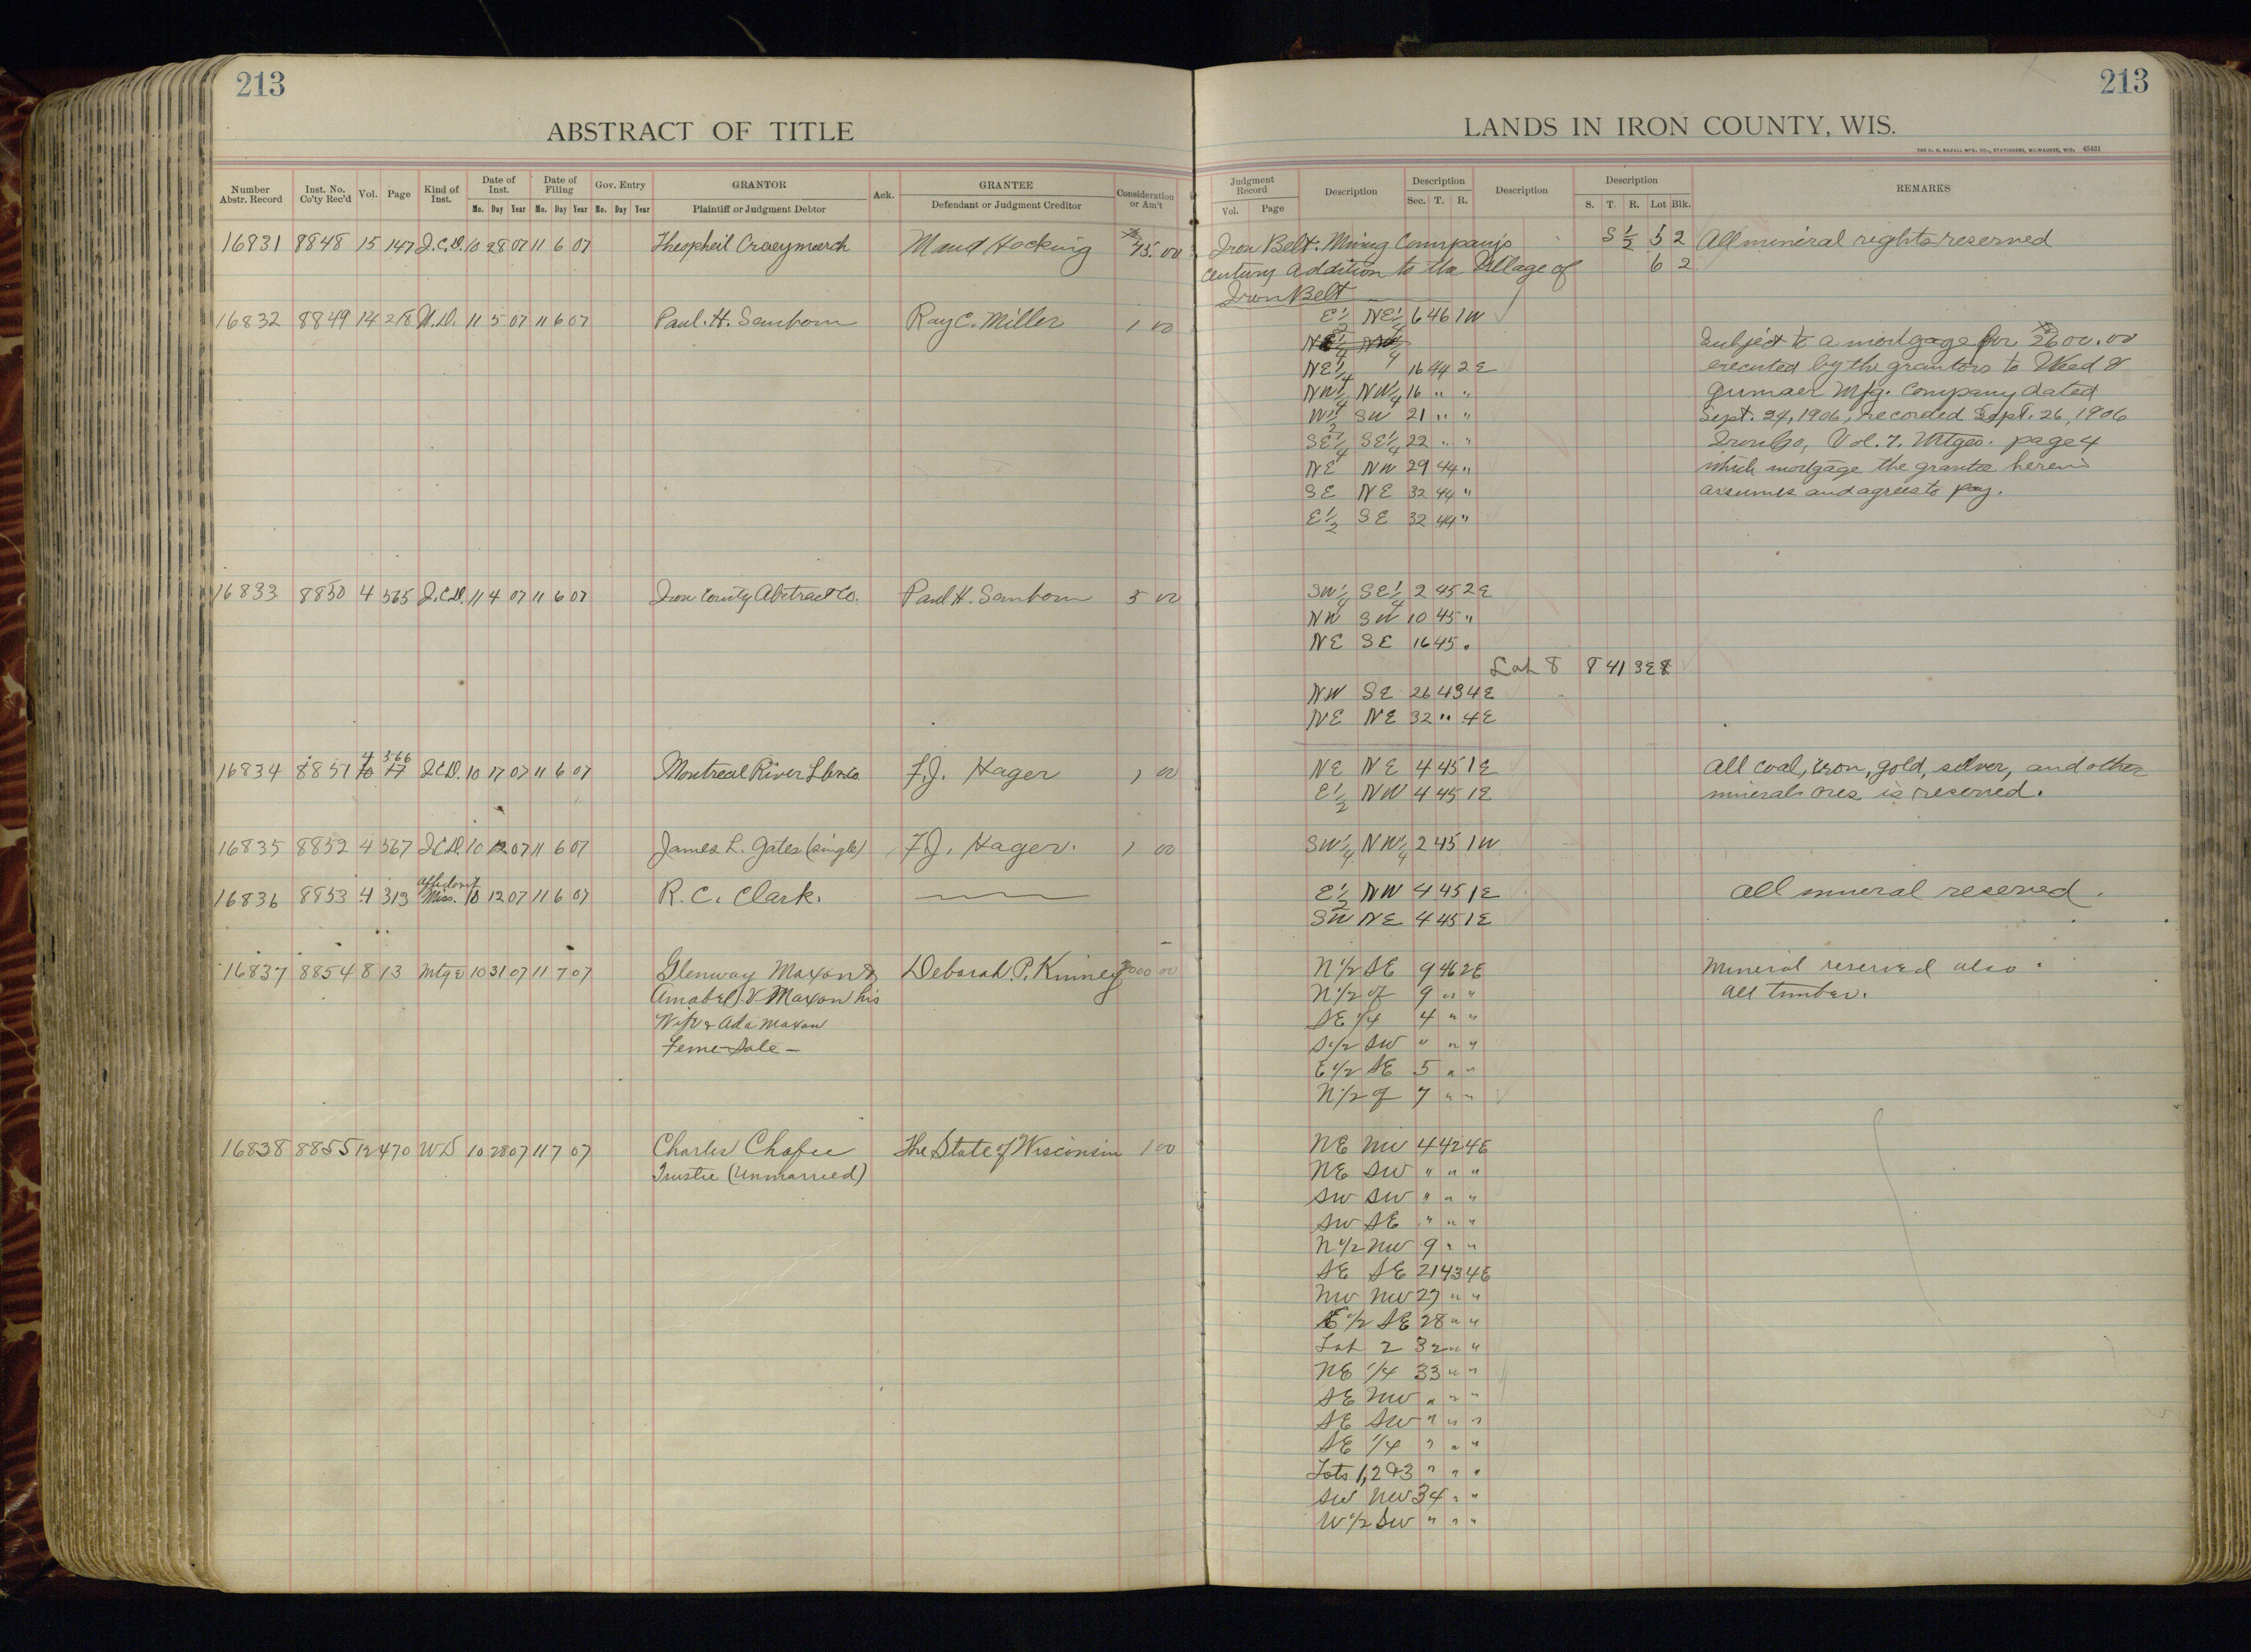 213
ABSTRACT OF TITLE
Number Abstr. Record Inst. No. Co'ty Rec'd Vol. Page Kind of Inst. Date of Inst. Mo. Day Year Date of Filing Mo. Day Year Gov. Entry Mo. Day Year GRANTOR Plaintiff or Judgment Debtor Ack. GRANTEE Defendant or Judgment Creditor Consideration or Am't
16831 8848 15 147 Q.C.D. 10 28 07 11 6 07 Maud Hocking 75.00
16832 8849 14 218 W.D. 11 5 07 11 6 07 Paul. H. Sanborn Ray C. Miller 1 00
16833 8850 4 565 Q.C.D. 11 4 07 11 6 07 Iron County Abstract Co. Paul H. Sanborn 5 00
4 566
16834 8851 10 17 Q.C.D. 10 17 07 11 6 07 Montreal River Lbr. Co. F.J. Hager 1 00
16835 8852 4 567 Q.C.D. 10 12 07 11 6 07 James L. Gates (single) F.J. Hager. 1 00
Affidavit
16836 8853 4 313 Miss. 10 12 07 11 6 07 R. C. Clark.
16837 8854 8 13 Mtge 10 31 07 11 7 07 Glenway Maxon & Deborah P. Kinney 3000 00
Annabel V Maxon his
Wife & Ada Maxon
Feme Sole —
16838 8855 12 470 WD 10 28 07 11 7 07 Charles Chafee The State of Wisconsin 1 00
Trustee (Unmarried)
213
LANDS IN IRON COUNTY, WIS.
THE H. G. RAZALL MFG. CO., STATIONERS, MILWAUKEE, WIS. 45431
Judgment Record Vol. Page Description Description Sec. T. R. Description Description S. T. R. Lot Blk. REMARKS
Iron Belt Mining Company's S 1/2 5 2 All mineral rights reserved
Century Addition to the Village of 6 2
Iron Belt
E 1/2 NE 1/4 6 46 1W
Subject to a mortgage for 2600.00
NE 1/4 16 44 2E executed by the grantors to Weed &
NW 1/4 NW 1/4 16 " " Gumaer Mfg. Company dated
W 1/2 SW 21 " " Sept. 24, 1906, recorded Sept. 26, 1906
SE 1/4 SE 1/4 22 " " Iron Co, Vol. 7, Mtges. page 4
NE NW 29 44 " which mortgage the grantee herein
SE NE 32 44 " assumes and agrees to pay.
E 1/2 SE 32 44 "
SW 1/4 SE 1/4 2 45 2E
NW SW 10 45 "
NE SE 16 45 "
Lot 8 8 41 3E 8
NW SE 26 43 4E
NE NE 32 " 4E
NE NE 4 45 1E All coal, iron, gold, silver, and other
E 1/2 NW 4 45 1E minerals ores is reserved.
SW 1/4 NW 1/4 2 45 1W
E 1/2 NW 4 45 1E All mineral reserved.
SW NE 4 45 1E
N 1/2 SE 9 46 2E Mineral reserved also
N 1/2 of 9 " " all timber.
SE 1/4 4 " "
S 1/2 SW " " "
E 1/2 SE 5 " "
N 1/2 of 7 " "
NE NW 4 42 4E
NE SW " " "
SW SW " " "
SW SE " " "
N 1/2 NW 9 " "
SE SE 21 43 4E
NW NW 27 " "
E 1/2 SE 28 " "
Lot 2 32 " "
NE 1/4 33 " "
SE NW " " "
SE SW " " "
SE 1/4 " " "
Lots 1, 2 & 3 " " "
SW NW 34 " "
W 1/2 SW " " "